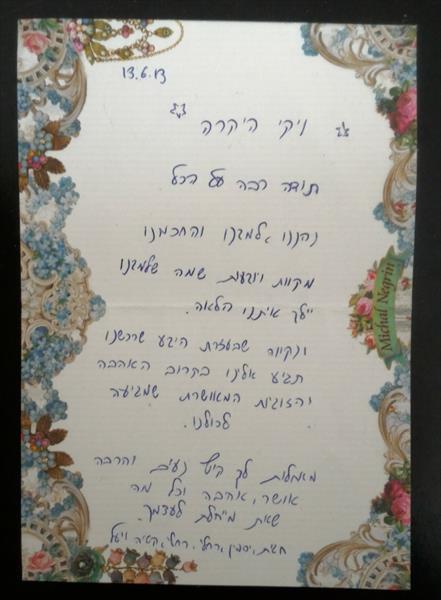 13.6.13
ויקי היקרה
תודה רבה על הכל
נהננו, למדנו והחכמנו
מקוות ויודעות שמה שלמדנו
ילך איתנו הלאה.
ונקווה שבעזרת הידע שרכשנו
תגיע אלינו בקרוב האהבה
והזוגיות המאושרת שמגיעה
לכולנו.
מאחלות לך קיץ נעים והרבה
אושר, אהבה וכל מה
שאת מייחלת לעצמך.
יסמין, רחלי, רחלי, קטיה ויעל
Michal Negrin